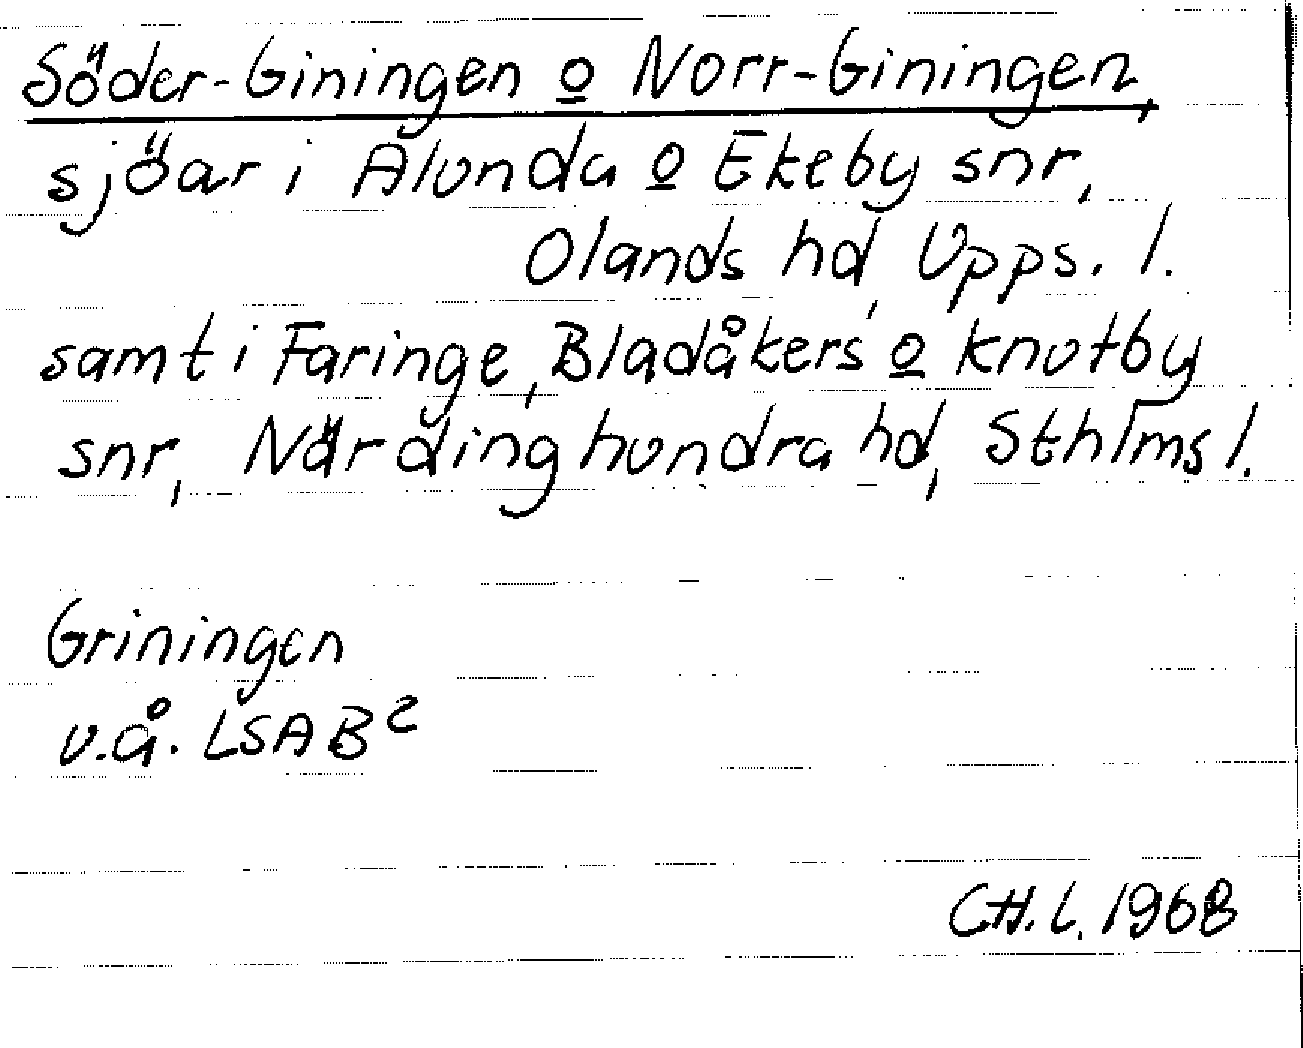 Söder-Giningen o Norr-Giningen,
sjöar i Alunda o Ekeby snr,
Olands hd, Upps. l.
samt i Faringe, Bladåkers o Knutby
snr, Närdinghundra hd, Sthlms l.
Griningen
v.å. LSAB²
CH.L. 1968